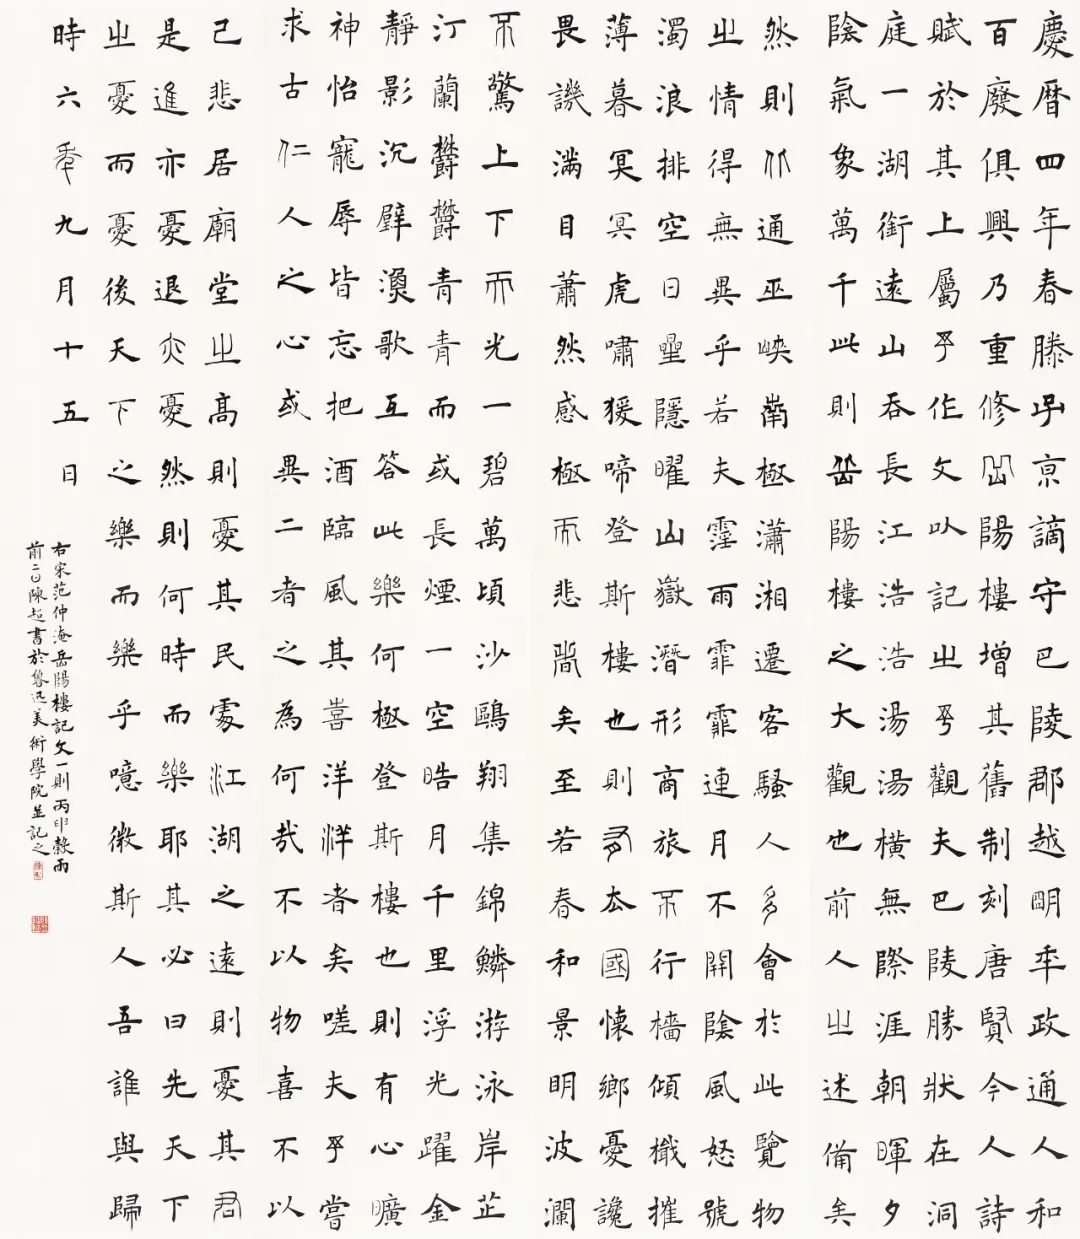 慶暦四年春滕子京謫守巴陵郡越明年政通人和
百廢俱興乃重修岳陽樓增其舊制刻唐賢今人詩
賦於其上屬予作文以記之予觀夫巴陵勝狀在洞
庭一湖銜遠山吞長江浩浩湯湯橫無際涯朝暉夕
陰氣象萬千此則岳陽樓之大觀也前人之述備矣
然則北通巫峽南極瀟湘遷客騷人多會於此覽物
之情得無異乎若夫霪雨霏霏連月不開陰風怒號
濁浪排空日星隱曜山嶽潛形商旅不行檣傾檝摧
薄暮冥冥虎嘯猨啼登斯樓也則有去國懷鄉憂讒
畏譏滿目蕭然感極而悲者矣至若春和景明波瀾
不驚上下天光一碧萬頃沙鷗翔集錦鱗游泳岸芷
汀蘭鬱鬱青青而或長煙一空皓月千里浮光躍金
靜影沉璧漁歌互答此樂何極登斯樓也則有心曠
神怡寵辱皆忘把酒臨風其喜洋洋者矣嗟夫予嘗
求古仁人之心或異二者之為何哉不以物喜不以
己悲居廟堂之高則憂其民處江湖之遠則憂其君
是進亦憂退亦憂然則何時而樂耶其必曰先天下
之憂而憂後天下之樂而樂乎噫微斯人吾誰與歸
時六年九月十五日
右宋范仲淹岳陽樓記文一則丙申穀雨
前二日陳超書於魯迅美術學院並記之